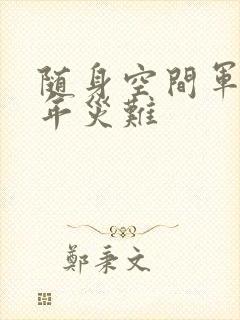 随身空間軍
年災難
鄭秉文